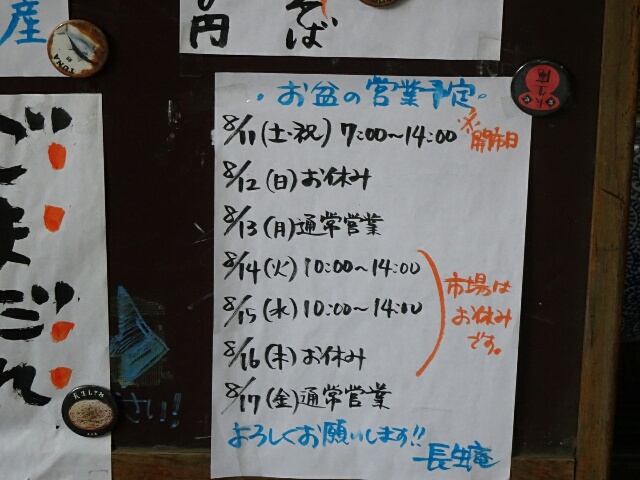 産
円
そば
ごまだれ
さい!!
・お盆の営業予定・
8/11(土・祝) 7:00~14:00 ※開市日
8/12(日)お休み
8/13(月)通常営業
8/14(火) 10:00~14:00
8/15(水) 10:00~14:00
8/16(木)お休み
8/17(金)通常営業
市場は
お休み
です。
よろしくお願いします!!
長生庵